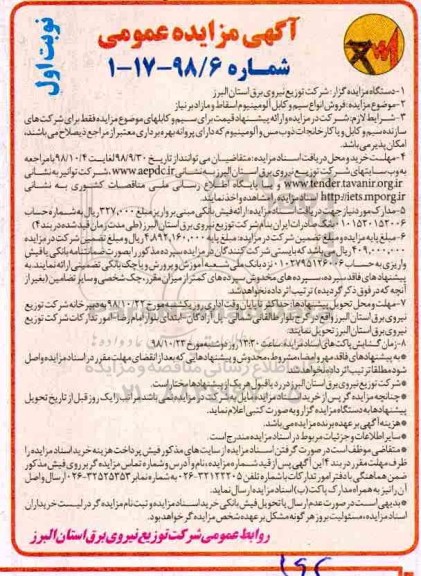 آگهی مزایده عمومی
شماره ۹۸/۶-۱۷-۱
نوبت اول
۱-دستگاه مزایده گزار: شرکت توزیع نیروی برق استان البرز
۲-موضوع مزایده: فروش انواع سیم و کابل آلومینیوم اسقاط و مازاد بر نیاز
۳-شرایط لازم: شرکت در مزایده و ارائه پیشنهاد قیمت برای سیم و کابلهای موضوع مزایده فقط برای شرکت های
سازنده سیم و کابل و یا کارخانجات ذوب مس و آلومینیوم که دارای پروانه بهره برداری معتبر از مراجع ذیصلاح می باشند،
امکان پذیر می باشد.
۴-مهلت خرید و محل دریافت اسناد مزایده: متقاضیان می توانند از تاریخ ۹۸/۹/۳۰ لغایت ۹۸/۱۰/۴ با مراجعه
به وب سایتهای شرکت توزیع نیروی برق استان البرز به نشانی www.aepdc.ir، شرکت توانیر به نشانی
www.tender.tavanir.org.ir و یا پایگاه اطلاع رسانی ملی مناقصات کشوری به نشانی
http://iets.mporg.ir اسناد مزایده را مشاهده و اخذ نمایند.
۵-مدارک مورد نیاز جهت دریافت اسناد مزایده: ارائه فیش بانکی مبنی بر واریز مبلغ ۳۲۷,۰۰۰ ریال به شماره حساب
بانک صادرات ایران بنام شرکت توزیع نیروی برق استان البرز (طی مدت زمان قید شده در بند ۴)
۶-مبلغ پایه مزایده و مبلغ تضمین شرکت در مزایده: مبلغ پایه ریال و مبلغ تضمین شرکت در مزایده
ریال می باشد که بایستی شرکت کنندگان در مزایده سپرده مذکور را بصورت ضمانتنامه بانکی یا فیش
واریزی به حساب نزد بانک ملی شعبه آموزش و پرورش و یا چک بانکی تضمینی ارائه نمایند. به
پیشنهاد های فاقد سپرده، سپرده های مخدوش، سپرده های کمتر از میزان مقرر، چک شخصی و سایر تضامین (بغیر از
آنچه که در فوق ذکر گردیده) ترتیب اثر داده نخواهد شد.
۷-مهلت و محل تحویل پیشنهادها: حداکثر تا پایان وقت اداری روز یکشنبه مورخ ۹۸/۱۰/۲۲ به دبیرخانه شرکت توزیع
نیروی برق استان البرز واقع در کرج- بلوار طالقانی شمالی- پل آزادگان- ابتدای بلوار امام رضا- امور تدارکات شرکت توزیع
نیروی برق استان البرز تحویل نمایند.
۸-زمان گشایش پاکت های اسناد مزایده: ساعت ۱۳:۳۰ روز دوشنبه مورخ ۹۸/۱۰/۲۳
به پیشنهادهای فاقد مهر و امضاء، مشروط، مخدوش و پیشنهادهایی که بعد از انقضای مهلت مقرر در اسناد مزایده واصل
شود مطلقا ترتیب اثر داده نخواهد شد.
شرکت توزیع نیروی برق استان البرز در رد یا قبول هر یک از پیشنهادها مختار است.
چنانچه مزایده گر پس از خرید اسناد مزایده مایل به شرکت در مزایده نمی باشد مراتب را یک روز قبل از تاریخ تحویل
پیشنهادها به دستگاه مزایده گزار و به صورت کتبی اعلام نماید.
هزینه آگهی بر عهده برنده مزایده می باشد.
سایر اطلاعات و جزئیات مربوط در اسناد مزایده مندرج است.
متقاضی موظف است در صورت گرفتن اسناد مزایده از سایت های مذکور فیش پرداخت هزینه خرید اسناد مزایده را
ظرف مهلت مقرر در بند ۴ این آگهی پس از قید شماره مزایده، نام و آدرس و شماره تماس مزایده گر بر روی فیش مذکور
ضمن هماهنگی با دفتر امور تدارکات با شماره تلفن ۳۲۱۲۲۲۰۵-۰۲۶ به شماره نمابر ۳۲۵۲۵۳۵۳-۰۲۶ ارسال و اصل
آن را نیز به همراه مدارک پاکت (ب) اسناد مزایده ارسال نماید.
بدیهی است در صورت عدم ارسال یا تحویل فیش بانکی خرید اسناد مزایده و ثبت نام مزایده گر در لیست خریداران
اسناد مزایده، مسئولیت بروز هر گونه مشکل بر عهده شخص مزایده گر خواهد بود.
روابط عمومی شرکت توزیع نیروی برق استان البرز